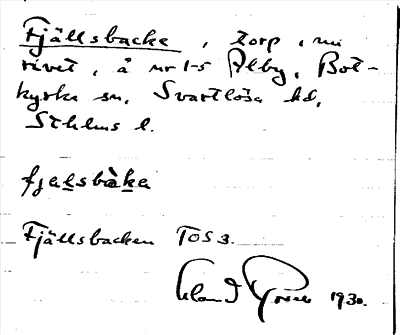 Fjällsbacke, torp, nu
rivet, å nr 1-5 Alby, Bot-
kyrka sn, Svartlösa hd,
Sthlms l.
fjälsbàka
Fjällsbacken TOS 3.
1930.